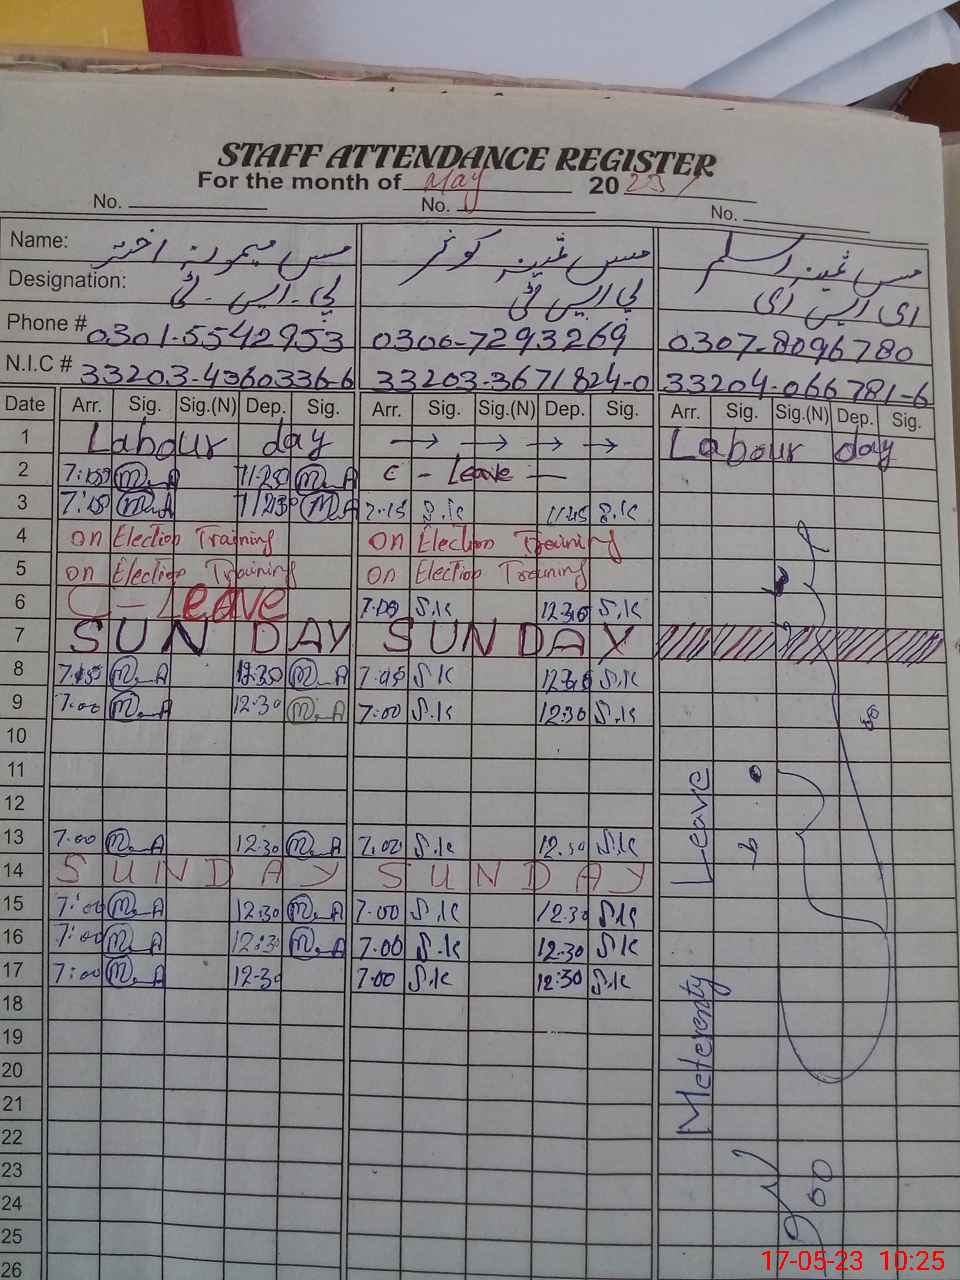 STAFF ATTENDANCE REGISTER
For the month of May 2023
No. No. No.
Name: مس میمونہ اختر مس ثمینہ کوثر مس ثمینہ اسلم
Designation: پی۔ایس۔ٹی پی ایس ٹی ای ایس ای
Phone # 0301-5542953 0306-7293269 0307-8096780
N.I.C # 33203-4360336-6 33203-3671824-0 33204-066781-6
Date Arr. Sig. Sig.(N) Dep. Sig. Arr. Sig. Sig.(N) Dep. Sig. Arr. Sig. Sig.(N) Dep. Sig.
1 Labour day → → → → Labour day
2 M.A M.A C - Leave —
3 M.A M.A 7.15 S.K 11.45 S.K
4 on Election Training on Election Training
5 on Election Training on Election Training
6 C - Leave 7.00 S.K 12.30 S.K
7 SUN DAY SUNDAY
8 M.A 12.30 M.A S.K 12.30 S.K
9 7:00 M.A 12.30 M.A 7:00 S.K 12.30 S.K
10
11
12
13 7.00 M.A 12.30 M.A 7.00 S.K 12.30 S.K
14 SUNDAY SUNDAY
15 7:00 M.A 12.30 M.A 7.00 S.K 12.30 S.K
16 7:00 M.A 12:30 M.A 7.00 S.K 12.30 S.K
17 7:00 M.A 12.30 7.00 S.K 12.30 S.K
18
19
20
21
22
23
24
25
26
Meterenty Leave
17-05-23 10:25